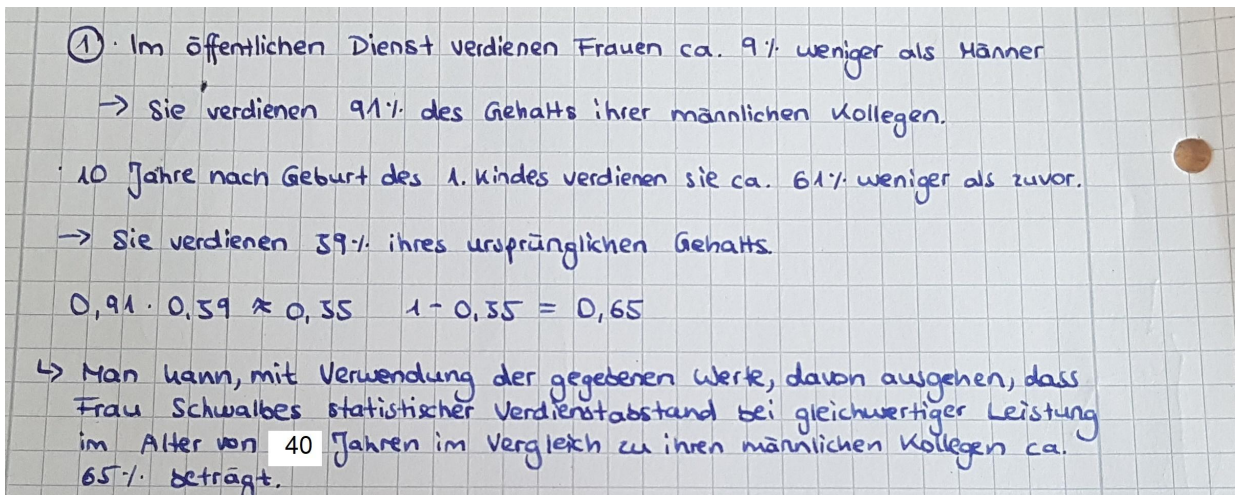 ① · Im öffentlichen Dienst verdienen Frauen ca. 9% weniger als Männer
→ Sie verdienen 91% des Gehalts ihrer männlichen Kollegen.
· 10 Jahre nach Geburt des 1. Kindes verdienen sie ca. 61% weniger als zuvor.
→ Sie verdienen 39% ihres ursprünglichen Gehalts.
0,91 · 0,39 ≈ 0,35 1 - 0,35 = 0,65
↳ Man kann, mit Verwendung der gegebenen Werte, davon ausgehen, dass
Frau Schwalbes statistischer Verdienstabstand bei gleichwertiger Leistung
im Alter von 40 Jahren im Vergleich zu ihren männlichen Kollegen ca.
65% beträgt.